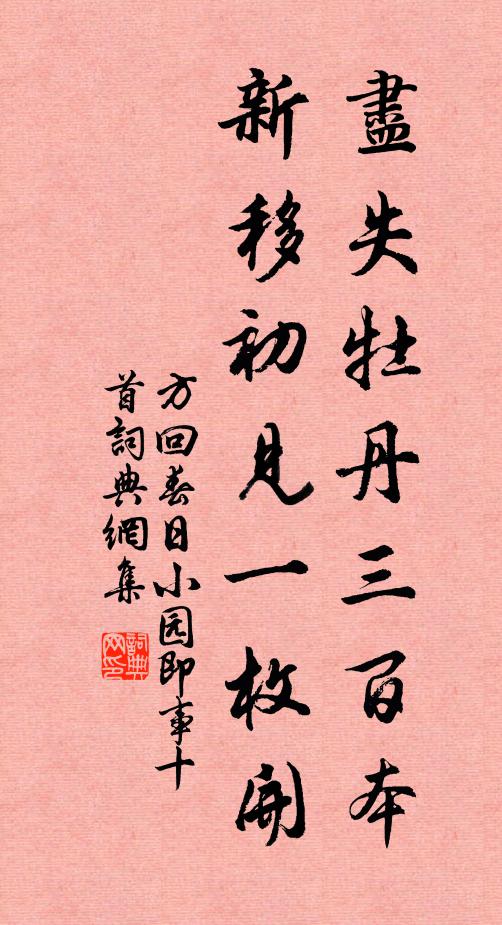 盡失牡丹三百本
新移初見一枚開
方回春日小园即事十
首詞典網集
詞典网印